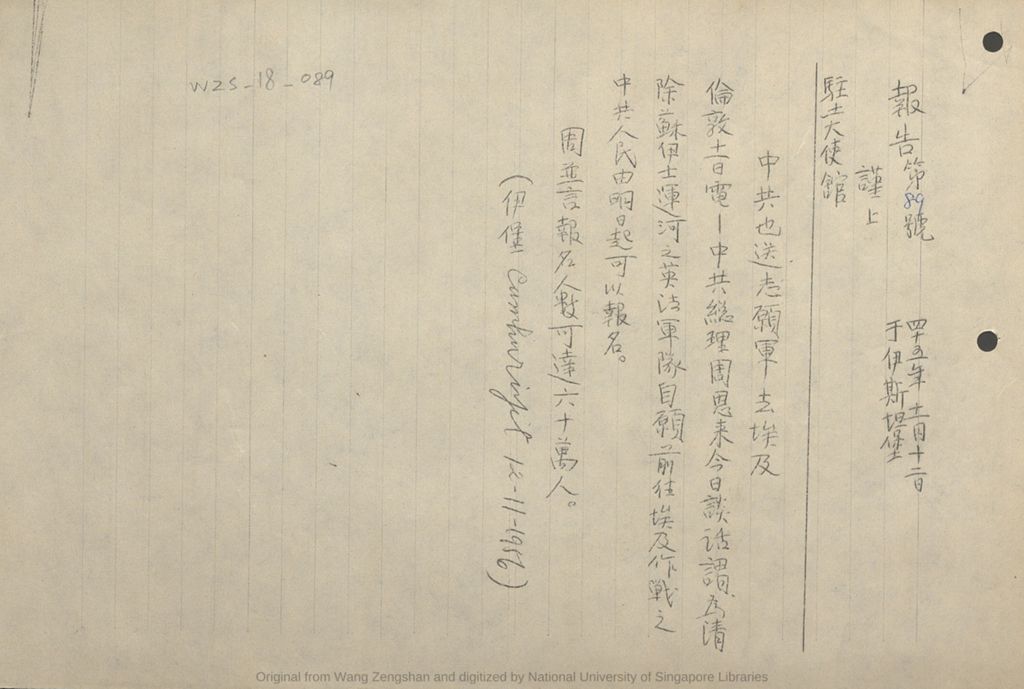 報告第89號
四十五年十一月十二日
于伊斯坦堡
謹上
駐土大使館
中共也送志願軍去埃及
倫敦十一日電—中共總理周恩来今日談話謂為清
除蘇伊士運河之英法軍隊自願前往埃及作戰之
中共人民由明日起可以報名。
周並言報名人數可達六十萬人。
(伊堡 Cumhuriyet 12-11-1956)
WZS-18-089
Original from Wang Zengshan and digitized by National University of Singapore Libraries